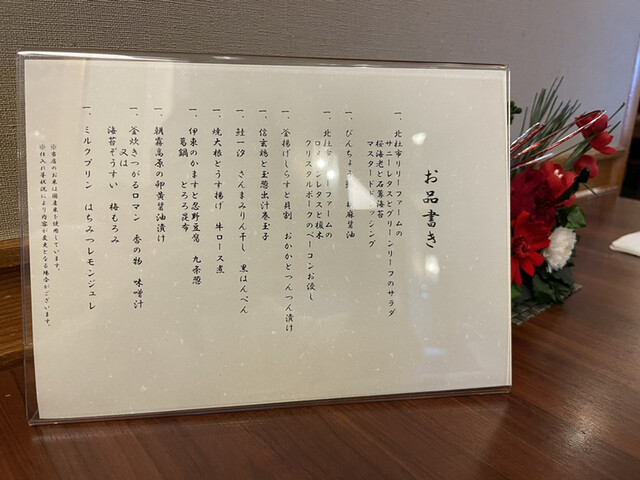 お品書き
一、北杜市リリーファームの
サニーレタスとグリーンリーフのサラダ
桜海老と石蓴海苔
マスタードドレッシング
一、びんちょう 胡麻醤油
一、北杜市 ーファームの
ロメインレタスと榎木
クリスタルポークのベーコンお浸し
一、釜揚げしらすと貝割 おかかとつんつん漬け
一、信玄鶏と玉葱出汁巻玉子
一、鮭一汐 さんまみりん干し 黒はんぺん
一、焼大根とうす揚げ 牛ロース煮
一、伊東のかますと忍野豆腐 九条葱
葛鍋 とろろ昆布
一、朝霧高原の卵黄醤油漬け
一、釜炊きつがるロマン 香の物 味噌汁
又は
海苔ぞうすい 梅もろみ
一、ミルクプリン はちみつレモンジュレ
※当店のお米は国産米を使用しています。
※仕入れ等状況により内容が変更となる場合がございます。